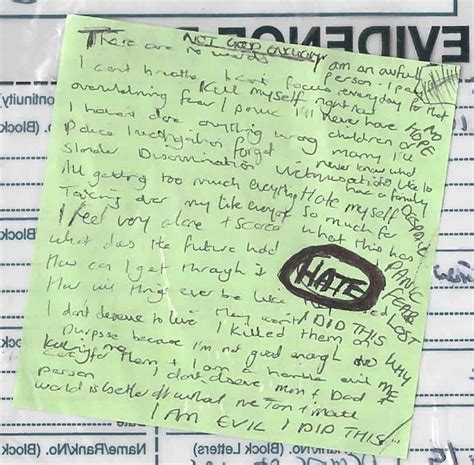 EVIDENCE
NOT GOOD ENOUGH
There are no words I am an awful
I can't breathe I can't focus person I pay
everyday for that
overwhelming fear Kill myself right now
HOPE
I panic I'll never have NO
I haven't done anything wrong children or marry
Police investigation forget I'll never know what
Slander Discrimination Victimisation like to
have a family
All getting too much everything Hate myself
DESPAIR
Taking over my life everyone so much for
I feel very alone + scared what this has
PANIC
FEAR
LOST
What does the future hold
HATE
How can I get through it
How will things ever be like
I DID THIS
WHY
ME
I don't deserve to live They won't
I killed them on
purpose because I'm not good enough
to care for them + I am a horrible evil
person I don't deserve mum + Dad +
world is better off without me Tom + Matt
I AM EVIL I DID THIS
Continuity
No. (Block
Name/Rank/No.
(Block Letters)